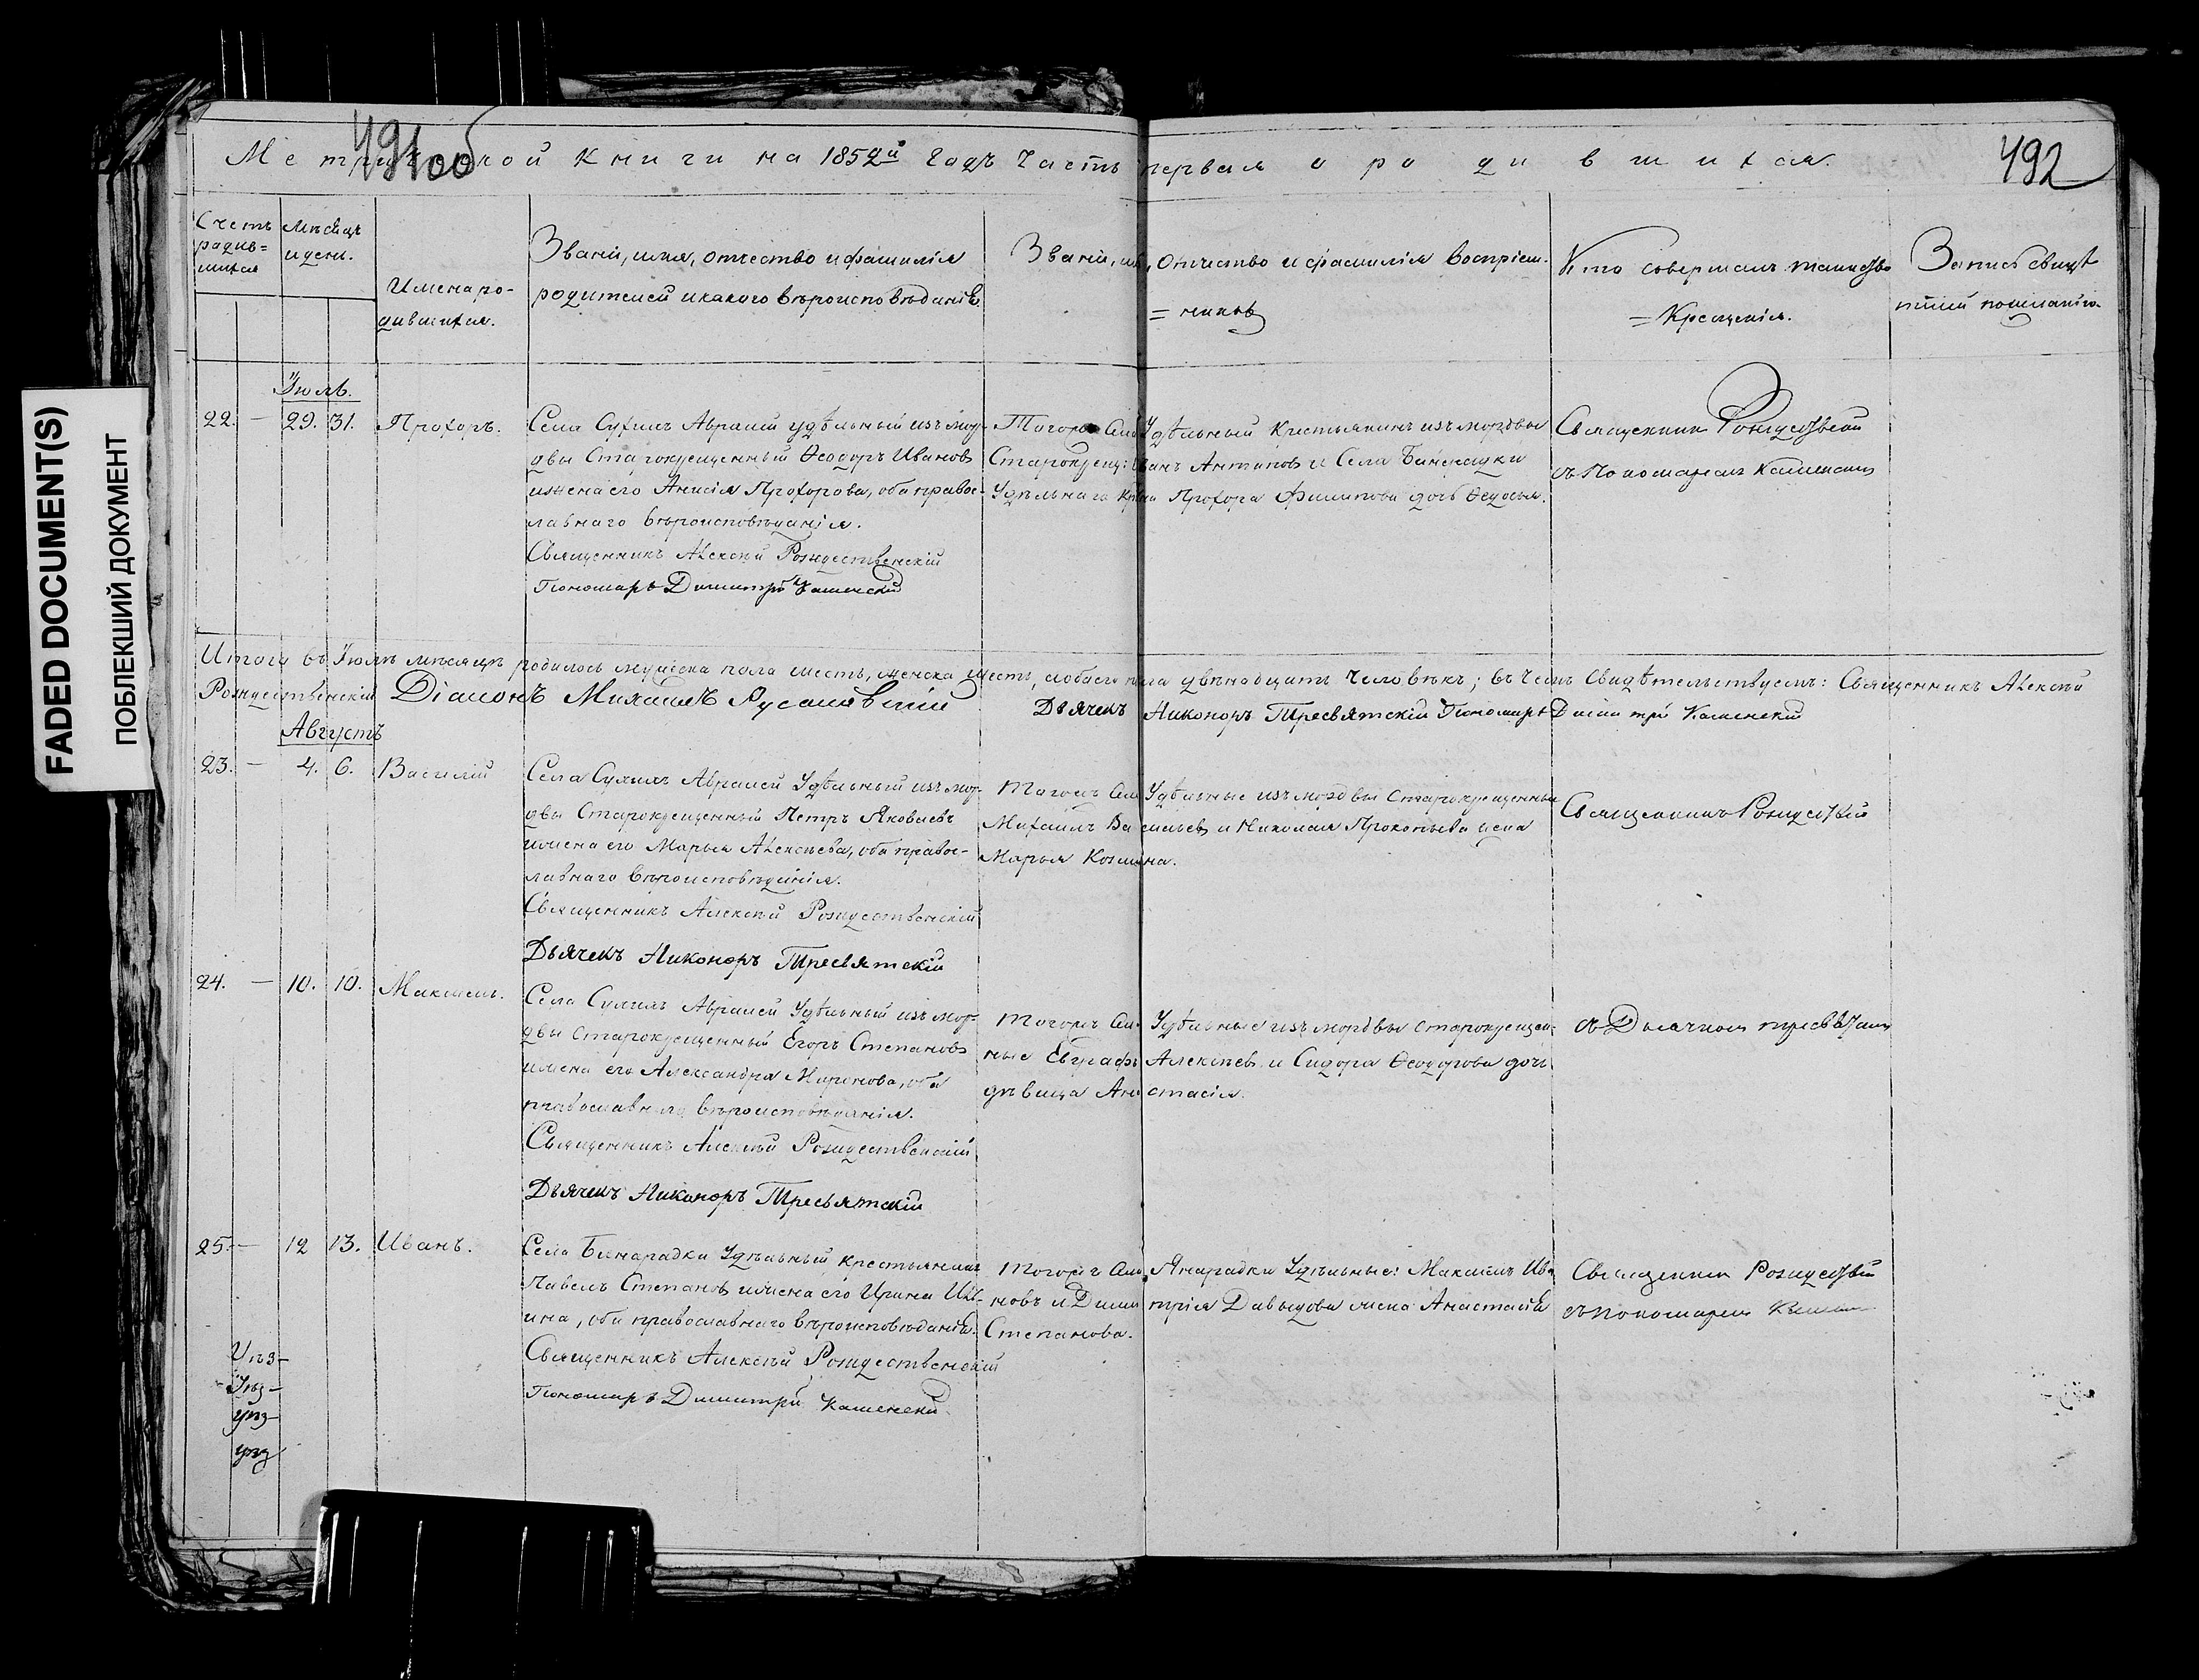 FADED DOCUMENT(S)
ПОБЛЕКШИЙ ДОКУМЕНТ
491об
492
Метрической книги на 1852й Годъ Часть первая о родившихся.
Счетъ родив=шихся
Мѣсяцъ и день.
Имена родившихся.
Званіе, имя, отчество и фамилія
родителей и какого вѣроисповѣданія
Званіе, имя, отчество и фамилія воспріем=
=никовъ
Кто совершалъ таинство
=Крещенія.
Запись свидѣ
Іюль.
22. — 29. 31. Прохоръ.
Села Сухихъ Авралей удѣльный изъ мор-
двы Старокрещенный Ѳеодоръ Ивановъ
и жена его Анисія Прохорова, оба правос-
лавнаго вѣроисповѣданія.
Священникъ Алексѣй Рождественскій
Пономарь Димитрій Каменскій
Тогожъ Села Удѣльный Крестьянинъ изъ мордвы
Старокрещ: Иванъ Антиповъ и Села
Удѣльнаго Кр-на Прохора Филипова дочь Ѳедосья.
Священникъ Рождествен
съ Пономаремъ Каменским
Итого въ Іюлѣ мѣсяцѣ родилось мужеска пола шесть, женска шесть, а обоего пола двѣнадцать человѣкъ; въ чемъ свидѣтельствуемъ: Священникъ Алексѣй
Рождественскій Діаконъ Михаилъ Русановскій Дьячекъ Никоноръ Тресвятскій Пономарь Димитрій Каменскій
Августъ
23. — 4. 6. Василій
Села Сухихъ Авралей Удѣльный изъ мор-
двы Старокрещенный Петръ Яковлевъ
и жена его Марья Алексѣева, оба правос-
лавнаго вѣроисповѣданія.
Священникъ Алексѣй Рождественскій
Дьячекъ Никоноръ Тресвятскій
Тогожъ Села Удѣльные изъ мордвы Старокрещенные
Михаилъ Васильевъ и Николая Прокопьева жена
Марья Козмина.
Священникъ Рождест
24. — 10. 10. Максимъ.
Села Сухихъ Авралей Удѣльный изъ мор-
двы Старокрещенный Егоръ Степановъ
и жена его Александра Миронова, оба
православнаго вѣроисповѣданія.
Священникъ Алексѣй Рождественскій
Дьячекъ Никоноръ Тресвятскій
Тогожъ Села Удѣльные изъ мордвы Старокрещен-
ные Евграфъ Алексѣевъ и Сидора Ѳеодорова дочь
дѣвица Анастасія.
съ Дьячкомъ Тресвятским
25. — 12 13. Иванъ.
Села Бинарадки Удѣльный крестьянинъ
Павелъ Степановъ и жена его Ирина
ина, оба православнаго вѣроисповѣданія.
Священникъ Алексѣй Рождественскій
Пономарь Димитрій Каменскій
Тогожъ Села Удѣльные: Максимъ Ива
новъ и Димитрія Давыдова жена Анастасія
Степанова.
Священникъ Рождествен
съ пономаремъ